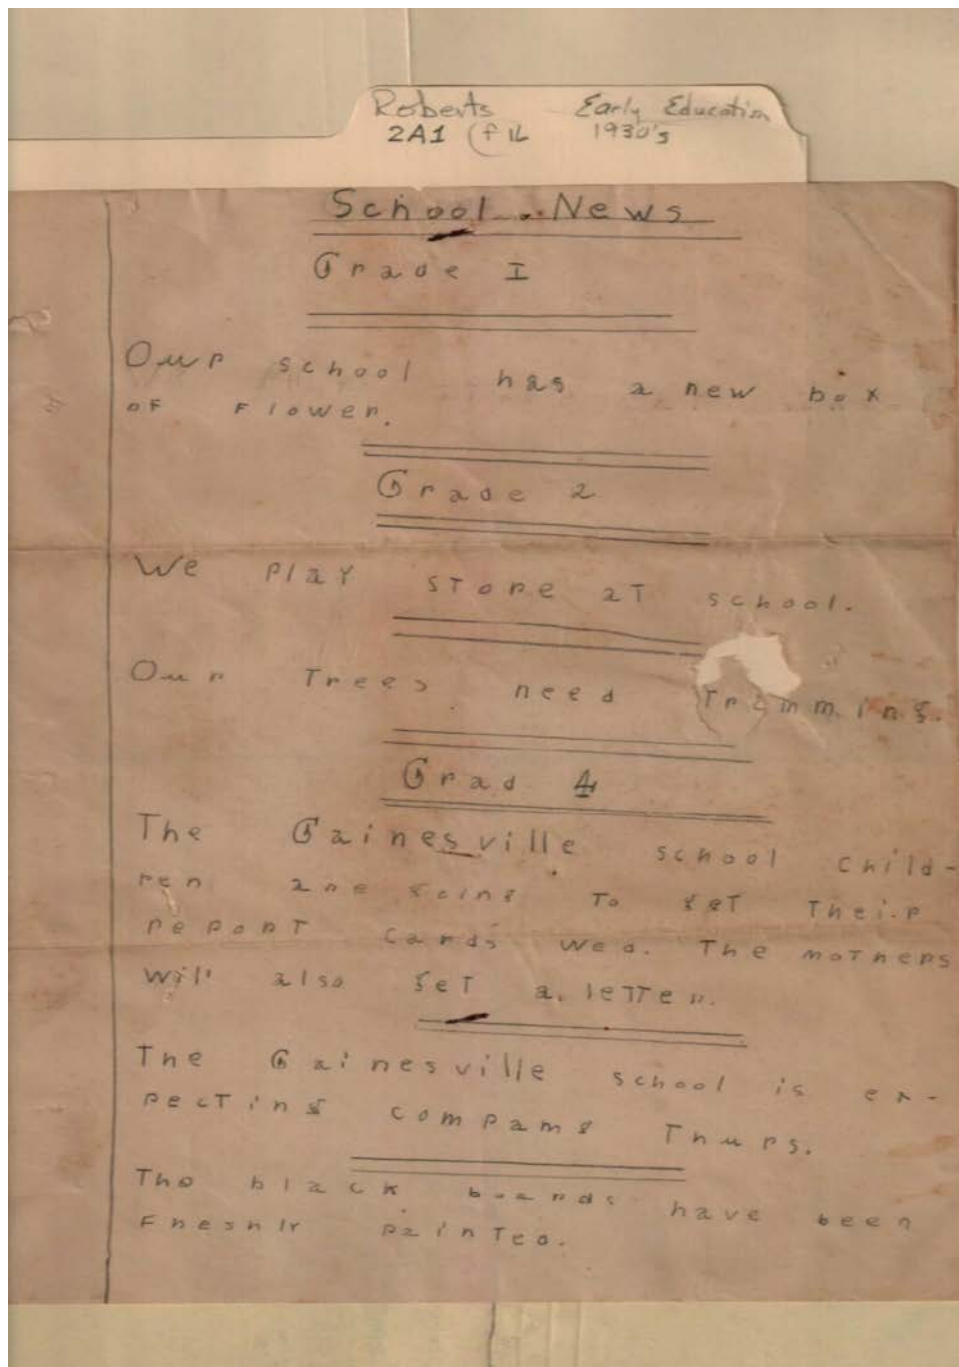 Roberts Early Education
2A1 (f 12 1930's
School News
Grade I
Our school has a new box
of Flower.
Grade 2
We play store at school.
Our Trees need Trimming.
Grad 4
The Gainesville school child-
ren are going To get Their
report cards Wed. The mothers
will also get a letter.
The Gainesville school is ex-
pecting compamy Thurs.
The black boards have been
Freshly painted.